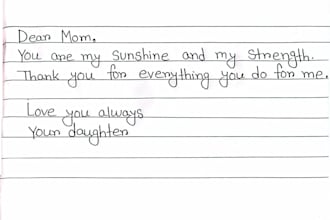 Dear Mom,
You are my sunshine and my strength.
Thank you for everything you do for me.
Love you always
Your daughter